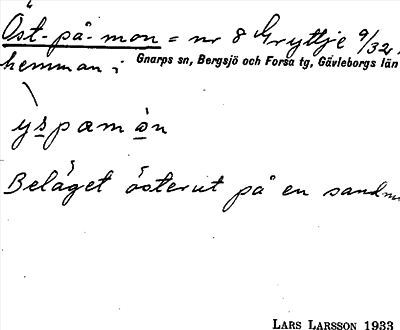 Öst-på-mon = nr 8 Gryttje 9/32
hemman i Gnarps sn, Bergsjö och Forsa tg, Gävleborgs län
yspæmòn
Beläget österut på en
LARS LARSSON 1933